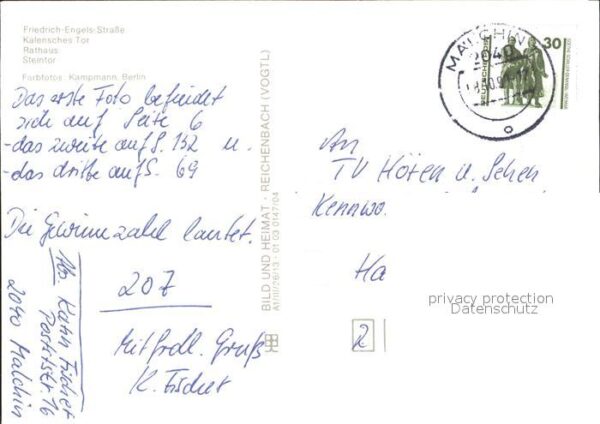 Friedrich-Engels-Straße
Kalensches Tor
Rathaus
Steintor
Farbfotos: Kampmann, Berlin
Das erste Foto befindet
sich auf Seite 6
-das zweite auf S. 132 u.
-das dritte auf S. 69
Die Gewinnzahl lautet.
207
Mit frdl. Gruß
K. Fischer
Abs. Karin Fischer
2040 Malchin
BILD UND HEIMAT · REICHENBACH (VOGTL)
A1/III/26/13 · 01 03 0147/04
MALCHIN
2040
30
An
TV Hören u. Sehen
Kennwo.
Ha
2
privacy protection
Datenschutz